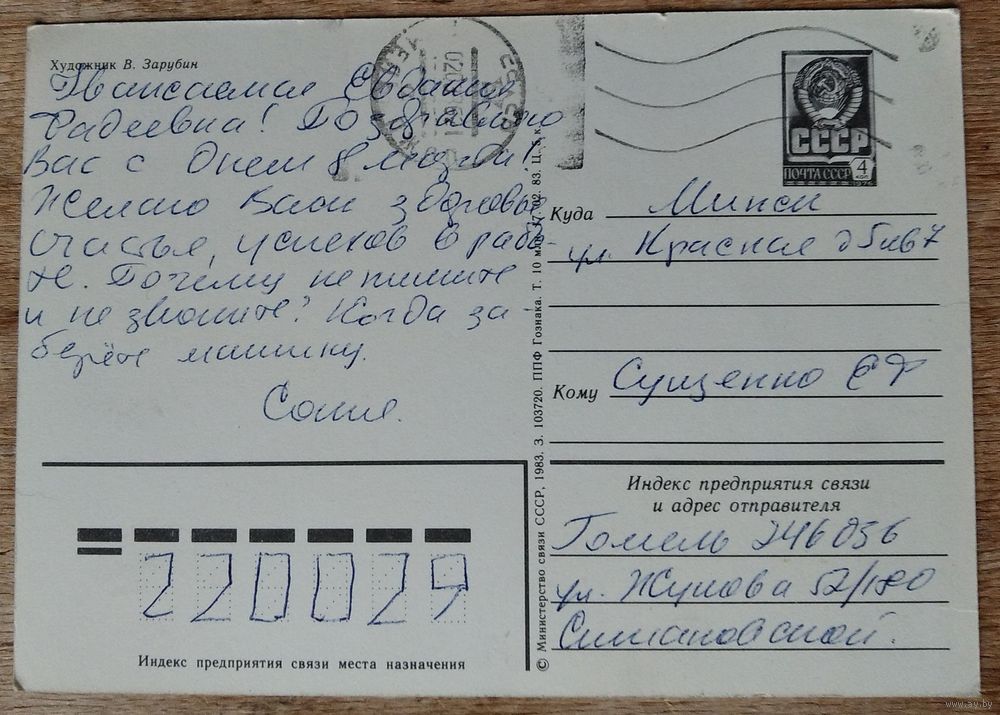 Художник В. Зарубин
Уважаемая Евдокия
Фадеевна! Поздравляю
Вас с Днем 8 марта!
Желаю Вам здоровья
счастья, успехов в рабо-
те. Почему не пишите
и не звоните? Когда за-
берёте машинку.
Соня.
СССР
ПОЧТА СССР 4 коп
1976
Куда Минск
ул. Красная д 5 кв 7
Кому Сущенко Е Ф
Индекс предприятия связи
и адрес отправителя
Гомель 246036
ул. Жукова 52/180
Симановской.
220029
Индекс предприятия связи места назначения
© Министерство связи СССР, 1983. З. 103720. ППФ Гознака. Т. 10 млн. 83. Ц. 5 к.
www.ay.by